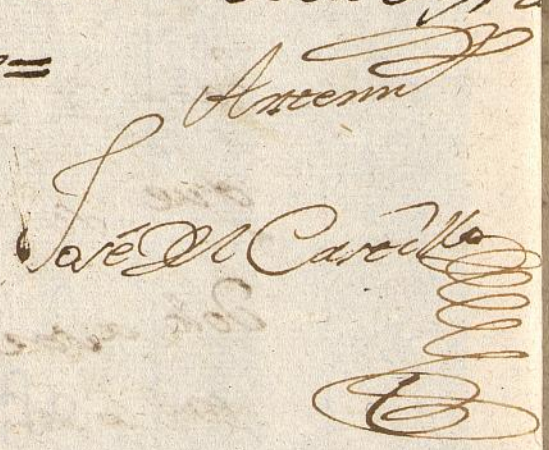 =
Antemi
José del Castillo